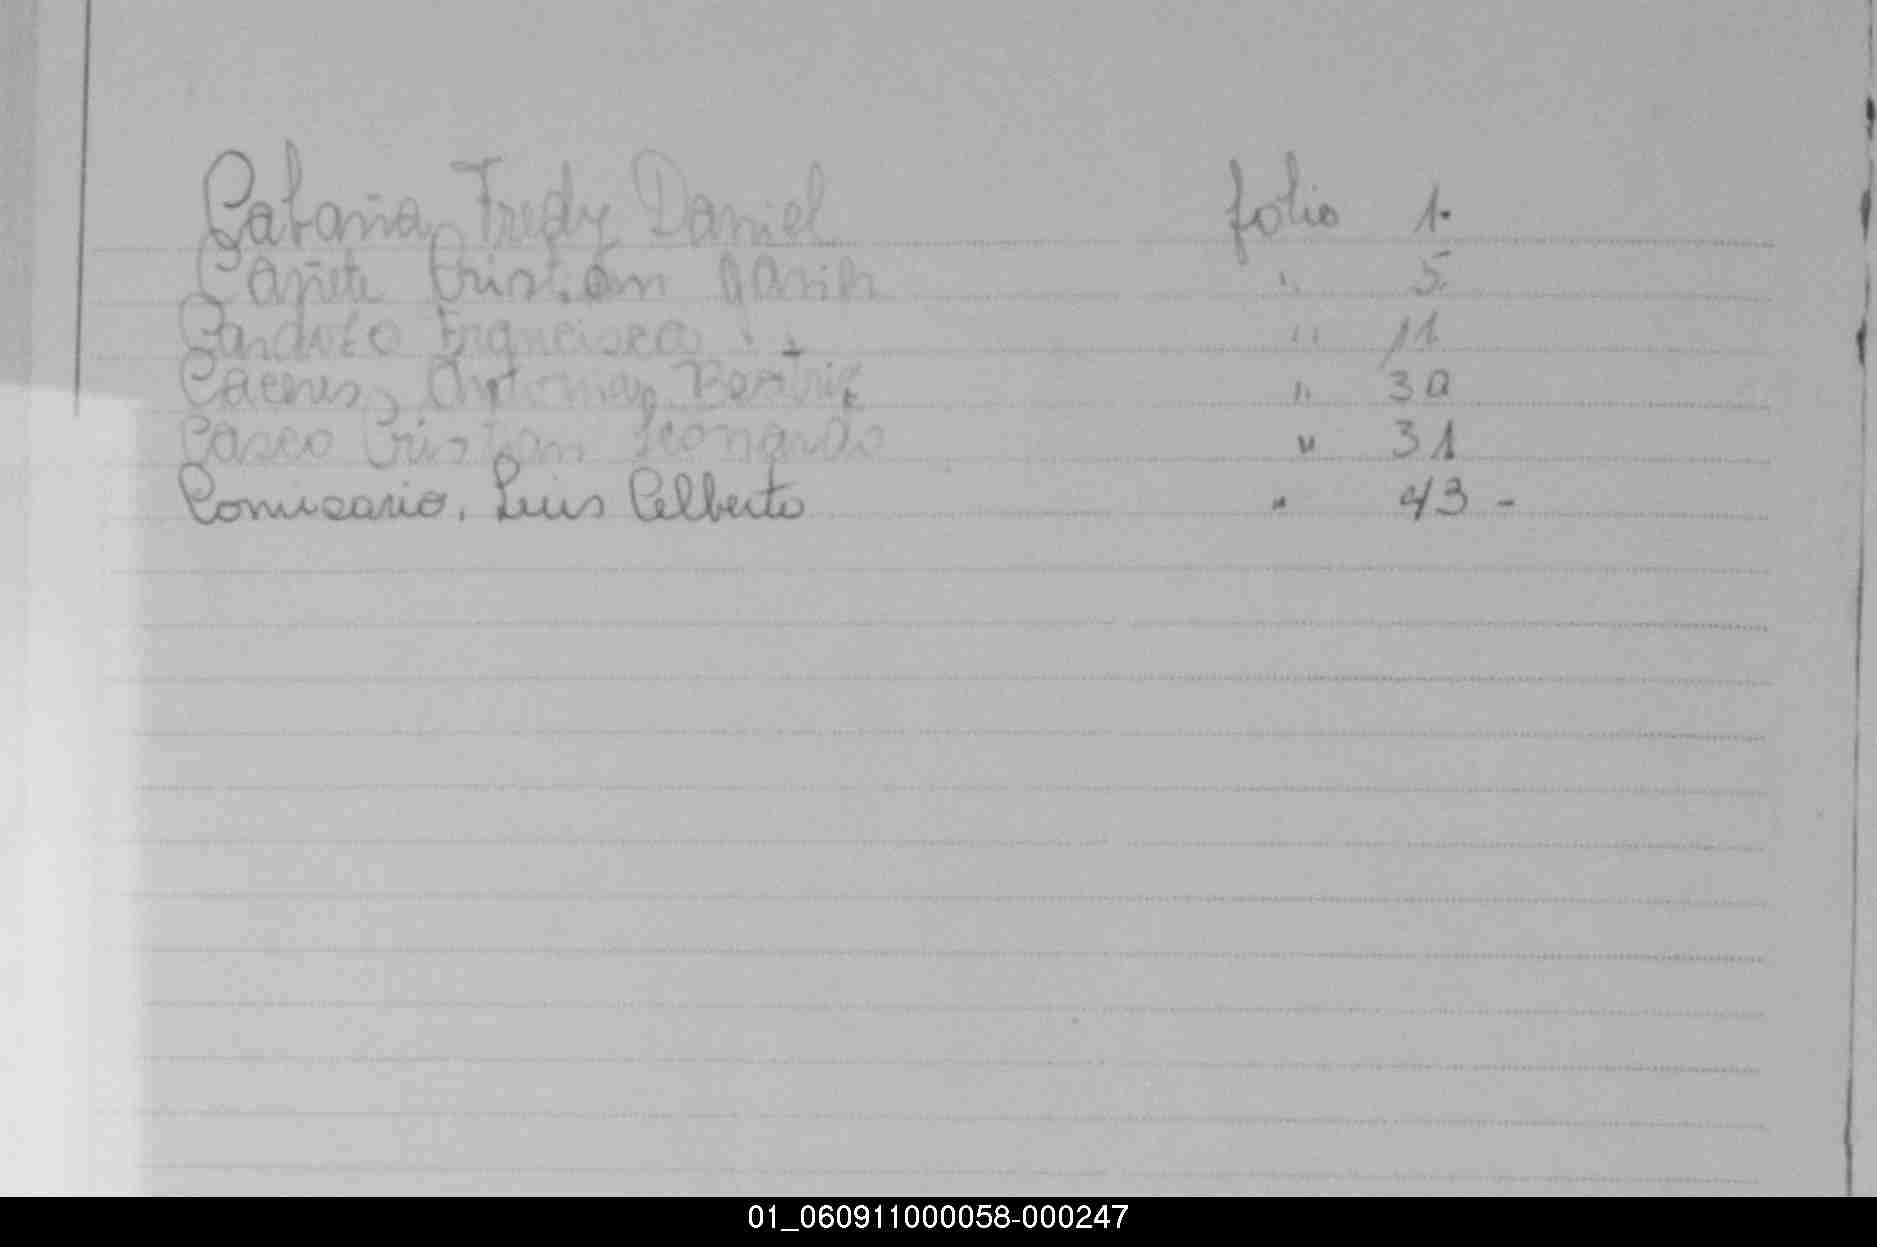 Cabaña, Fredy Daniel folio 1.
Cañete Cristian " 5.
Cardozo Francisca " 11
Caceres, Antonia, Beatriz " 30
Casco Cristian Leonardo " 31
Comisario, Luis Alberto " 43 -
01_060911000058-000247